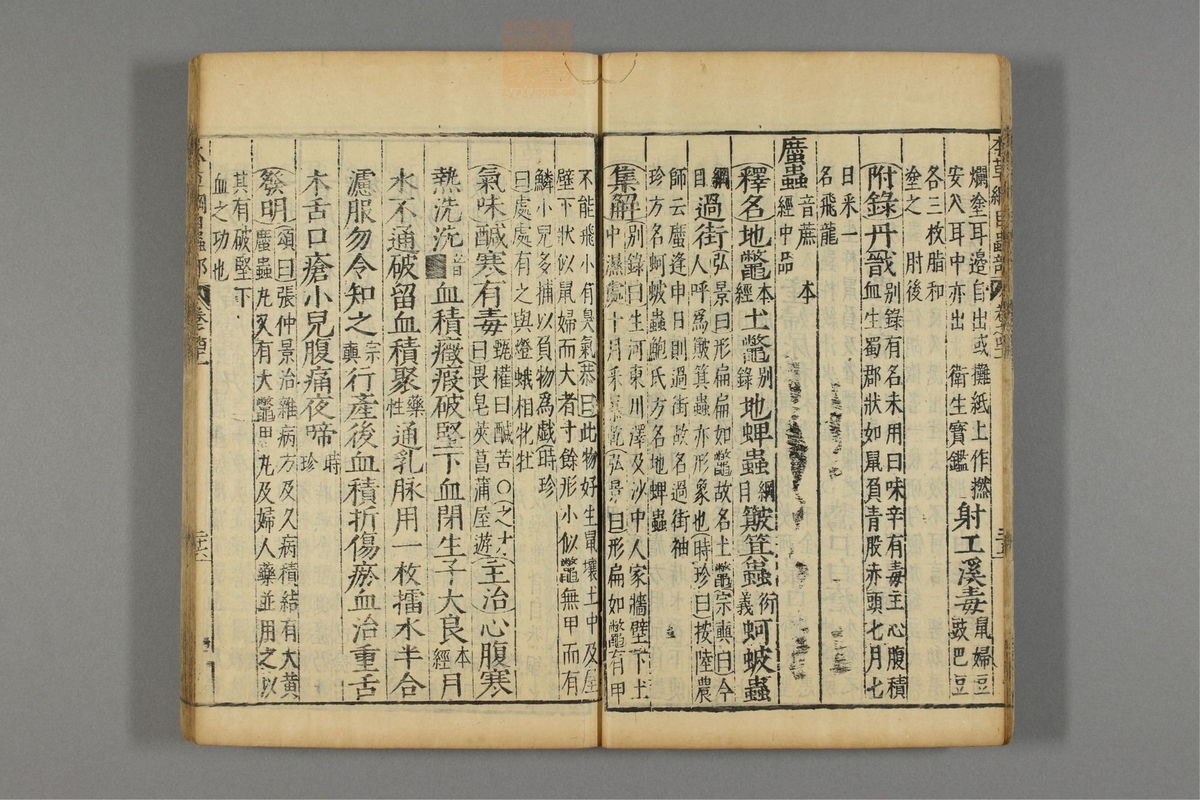 本草綱目蟲部
爛塗耳邊自出或攤紙上作撚
安入耳中亦出 衛生寶鑑
射工溪毒
鼠婦豆
豉巴豆
各三枚脂和
塗之 肘後
附錄丹戩
别錄有名未用曰味辛有毒主心腹積
血生蜀郡狀如鼠負青股赤頭七月七
日采一
名飛龍
䗪蟲
音蔗
本
經中品
釋名
地鱉
本
經
土鱉
别
錄
地蜱蟲
綱
目
簸箕蟲
衍
義
蚵蚾蟲
綱
目
過街
弘景曰形扁扁如鱉故名土鱉宗奭曰今
人呼爲簸箕蟲亦形象也時珍曰按陸農
師云䗪逢申日則過街故名過街袖
珍方名蚵蚾蟲鮑氏方名地蜱蟲
集解
别錄曰生河東川澤及沙中人家牆壁下土
中濕處十月采暴乾弘景曰形扁如鱉有甲
不能飛小有臭氣恭曰此物好生鼠壤土中及屋
壁下狀似鼠婦而大者寸餘形小似鱉無甲而有
鱗小兒多捕以負物爲戯時珍
曰處處有之與燈蛾相牝牡
氣味
鹹寒有毒
甄權曰鹹苦〇之才
曰畏皂莢菖蒲屋遊
主治
心腹寒
熱洗洗
音
血積癥瘕破堅下血閉生子大良
本
經
月
水不通破留血積聚
藥
性
通乳脉用一枚擂水半合
濾服勿令知之
宗
奭
行產後血積折傷瘀血治重舌
木舌口瘡小兒腹痛夜啼
時
珍
發明
頌曰張仲景治雜病方及久病積結有大黄
䗪蟲丸又有大鱉甲丸及婦人藥並用之以
其有破堅下
血之功也